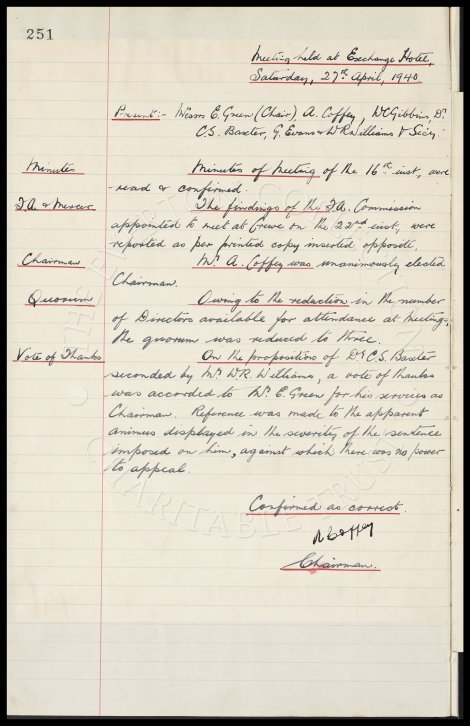 251
Meeting held at Exchange Hotel,
Saturday, 27th April, 1940.
Present:- Messrs E. Green (Chair) A. Coffey, W.C. Gibbins, Dr
C.S. Baxter, G. Evans & W.R. Williams & Secy.
Minutes Minutes of Meeting of the 16th inst, were
read & confirmed.
F.A. & Mercer The findings of the F.A. Commission
appointed to meet at Crewe on the 22nd inst, were
reported as per printed copy inserted opposite,
Chairman Mr A. Coffey was unanimously elected
Chairman.
Quorum Owing to the reduction in the number
of Directors available for attendance at Meetings,
the quorum was reduced to three.
Vote of Thanks On the proposition of Dr C.S. Baxter
seconded by Mr W.R. Williams, a vote of thanks
was accorded to Mr E. Green for his services as
Chairman. Reference was made to the apparent
animus displayed in the severity of the sentence
imposed on him, against which there was no power
to appeal.
Confirmed as correct.
A Coffey
Chairman.
CHARITABLE TRUST